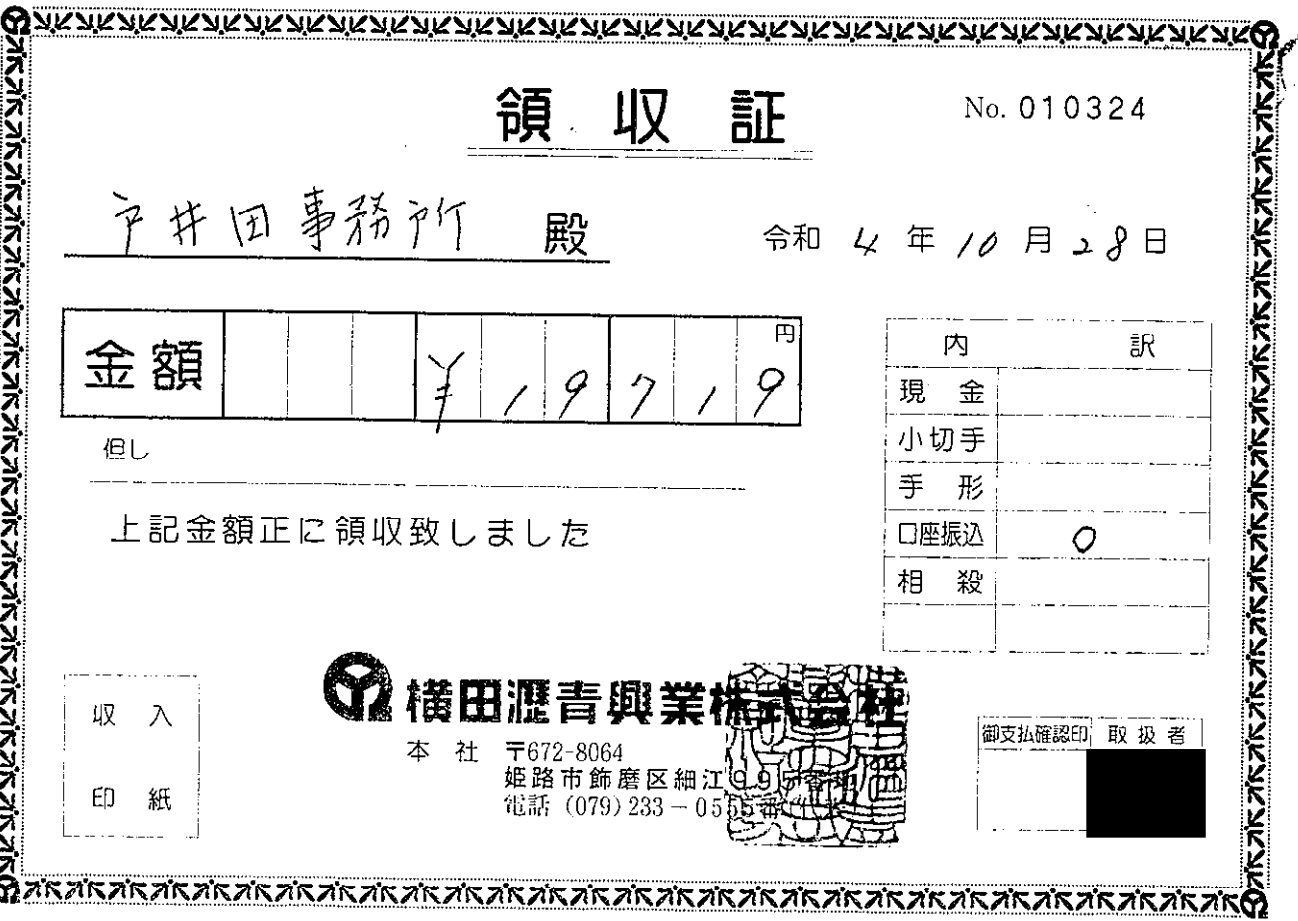 領収証
No. 010324
戸井田事務所 殿
令和 4 年 10 月 28 日
金額 ¥19719 円
但し
上記金額正に領収致しました
内訳
現金
小切手
手形
口座振込 0
相殺
収入
印紙
横田瀝青興業株式会社
本社 〒672-8064
姫路市飾磨区細江995番地
電話 (079) 233-0555番
御支払確認印 取扱者